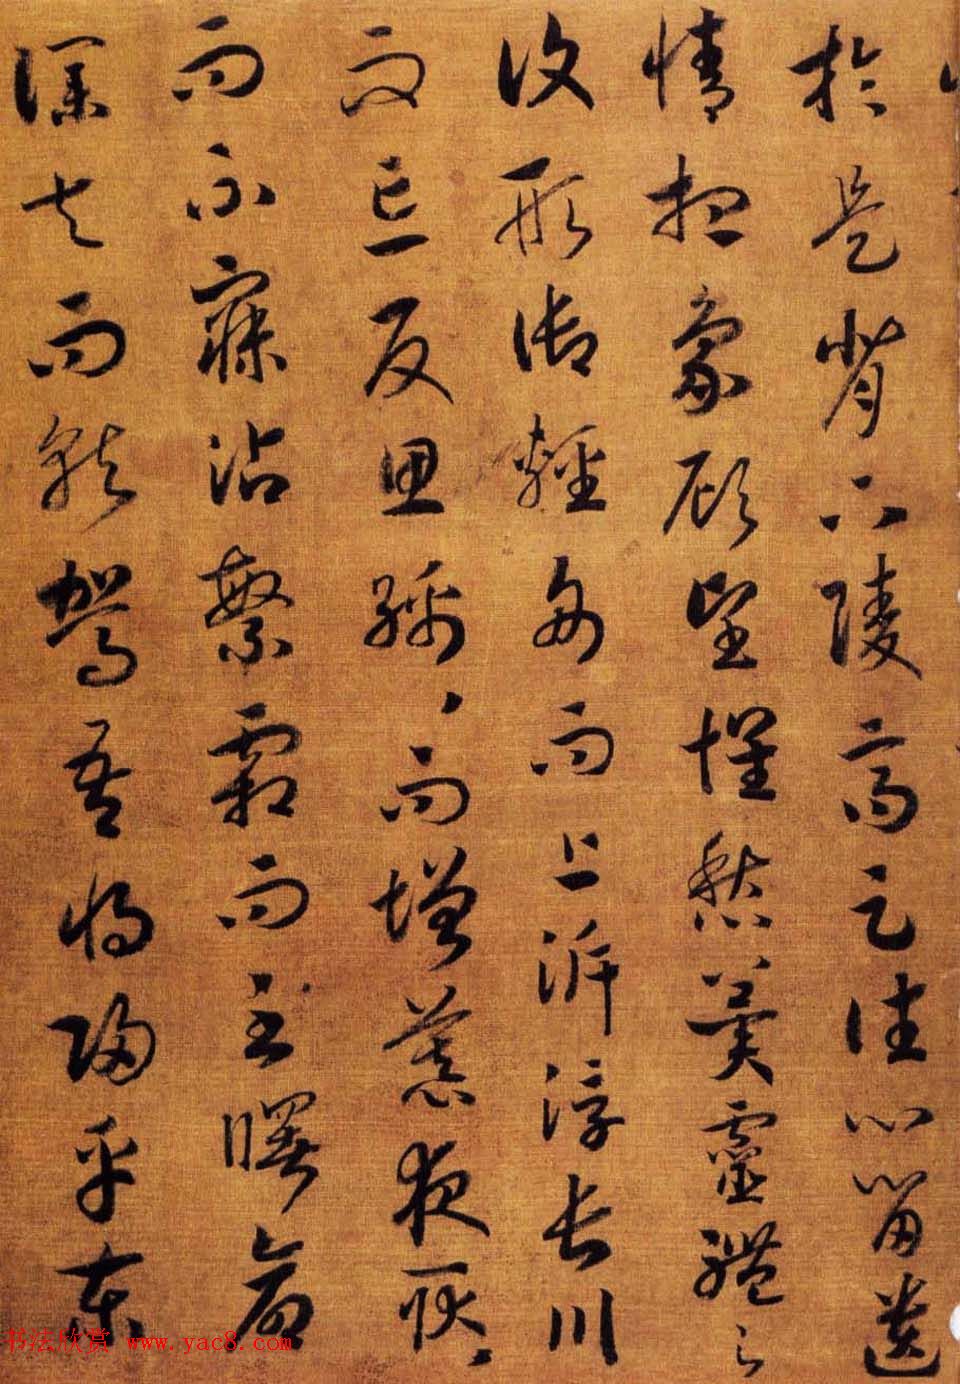 於是背下陵高足往心留遺
情想象顧望懷愁冀靈體之
復形御輕舟而上泝浮長川
而忘反思緜、而增慕夜耿、
而不寐沾繁霜而至曙命
僕夫而就駕吾將歸乎東
书法欣赏 www.yac8.com